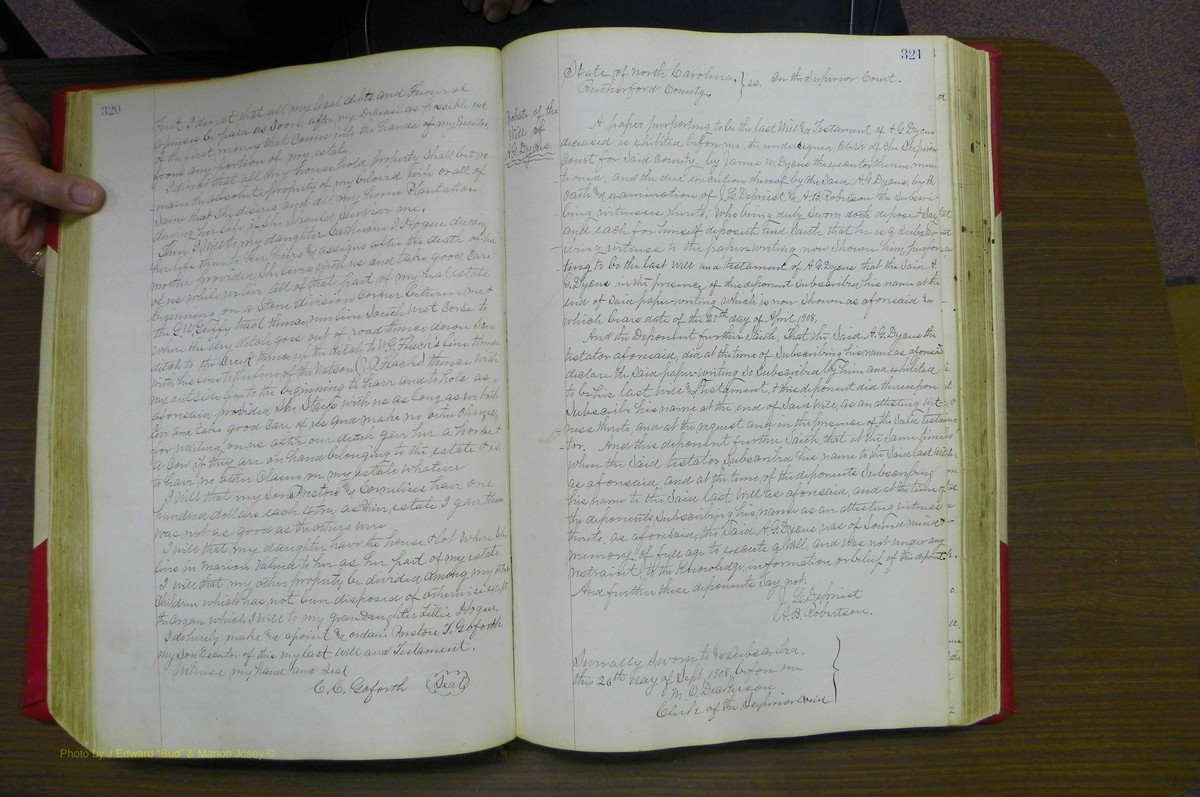 320
First I desire that all my legal debts and Funeral
expenses be paid as Soon after my Decease as possible out
of the first money that Comes into the hands of my Executor
from any portion of my estate.
I desire that all my household property Shall be re-
main the absolute property of my beloved wife or all of
Same that She desires, and all my home Plantation
during her life if She Should Survive me.
Then I Will to my daughter Catherine J. Hogan during
her life then to her heirs & assigns after the death of her
mother provided She lives with us and take good Care
of us while we live all of that part of my real estate
beginning on a Stone division Corner between me &
the G.W. Guffy tract thence
where the dry ditch goes out of road thence down Said
ditch to the Creek thence up the ditch to W.G. Flack's line thence
with his line to the line of the Watson (J. P. Flack) thence with
my outside line to the beginning to have and to hold as
aforesaid provided She Stays with us as long as we both
live and take good Care of us and make no other Charges
for waiting on us after our death I give her a horse &
a Cow if they are on hand belonging to the estate & is
to have no other Claim on my estate whatever
I Will that my Sons Preston & Cornelius have one
hundred dollars each extra as their estate I gave them
was not as good as the others were
I will that my daughter have the house & lot Where She
lives in Marion Valued to her as her part of my estate
I will that my other property be divided Among my other
Children which has not been disposed of otherwise except
the organ which I Will to my Grand Daughter Lillie Hogan.
I do hereby make & apoint & ordain Preston T. Goforth
my Son Executor of this my last Will and Testament.
Witness my hand and Seal
C. C. Goforth (Seal)
321
State of North Carolina, } ss. In the Superior Court.
Rutherford County,
Probate of the
Will of
A.G. Dycus.
A paper purporting to be the last Will & Testament of A.G. Dycus
deceased is exhibited before me, the undersigned Clerk of the Superior
Court for Said County, by James M. Dycus the executor therein men
tioned, and the due execution thereof by the Said A.G. Dycus, by the
oath & examination of J. G. Depriest & A.B. Robertson the Subscri-
bing witnesses thereto; who being duly Sworn doth depose & Say
and each for himself deposeth and Saith that he is a Subscri
bing witness to the paper writing now Shown him, purpor
ting to be the last Will and testament of A.G. Dycus, that the Said A.
G. Dycus in the presence of this deponent Subscribed his name at the
end of Said paper writing, which is now Shown as aforesaid &
which bears date of the 20th day of April 1908.
And the Deponent further Saith, That the Said A.G. Dycus the
testator aforesaid, did at the time of Subscribing his name as aforesaid
declare the Said paper writing So Subscribed by him and exhibited
to be his last Will & Testament, & this deponent did thereupon
Subscribe his name at the end of Said Will, as an attesting Wit
ness thereto, and at the request and in the presence of the Said testa
tor. And this deponent further Saith, that at the Same time
When the Said testator Subscribed his name to the Said last Will
as aforesaid, and at the time of the deponents Subscribing
his name to the Said last Will as aforesaid, and at the time of
the deponents Subscribing his name as an attesting witness
thereto, as aforesaid, the Said A.G. Dycus was of Sound mind &
memory, of full age to execute a Will, and was not under any
restraint, to the Knowledge, information or belief of the deponent.
And further these deponents Say not.
J. G. Depriest
A.B. Robertson.
Severally Sworn to & Subscribed
this 26th day of Sept. 1908, before me
M. O. Dickerson
Clerk of the Superior Court
Photo by J Edward "Bud" & Marion Josey ©